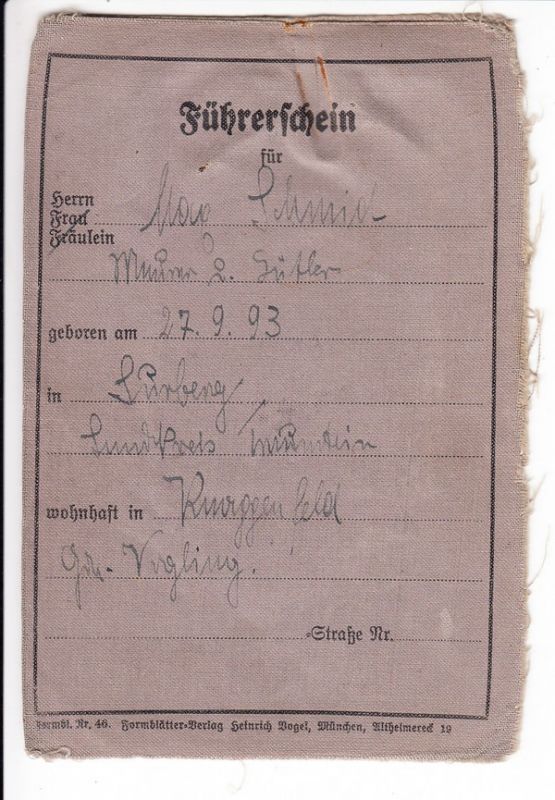 Führerschein
für
Herrn
Frau Max Schmid
Fräulein
Maurer
geboren am 27.9.93
in Surberg
Landkreis Traunstein
wohnhaft in Knappenfeld
Gde. Vogling.
-Straße Nr.
Formbl. Nr. 46. Formblätter-Verlag Heinrich Vogel, München, Altheimereck 19